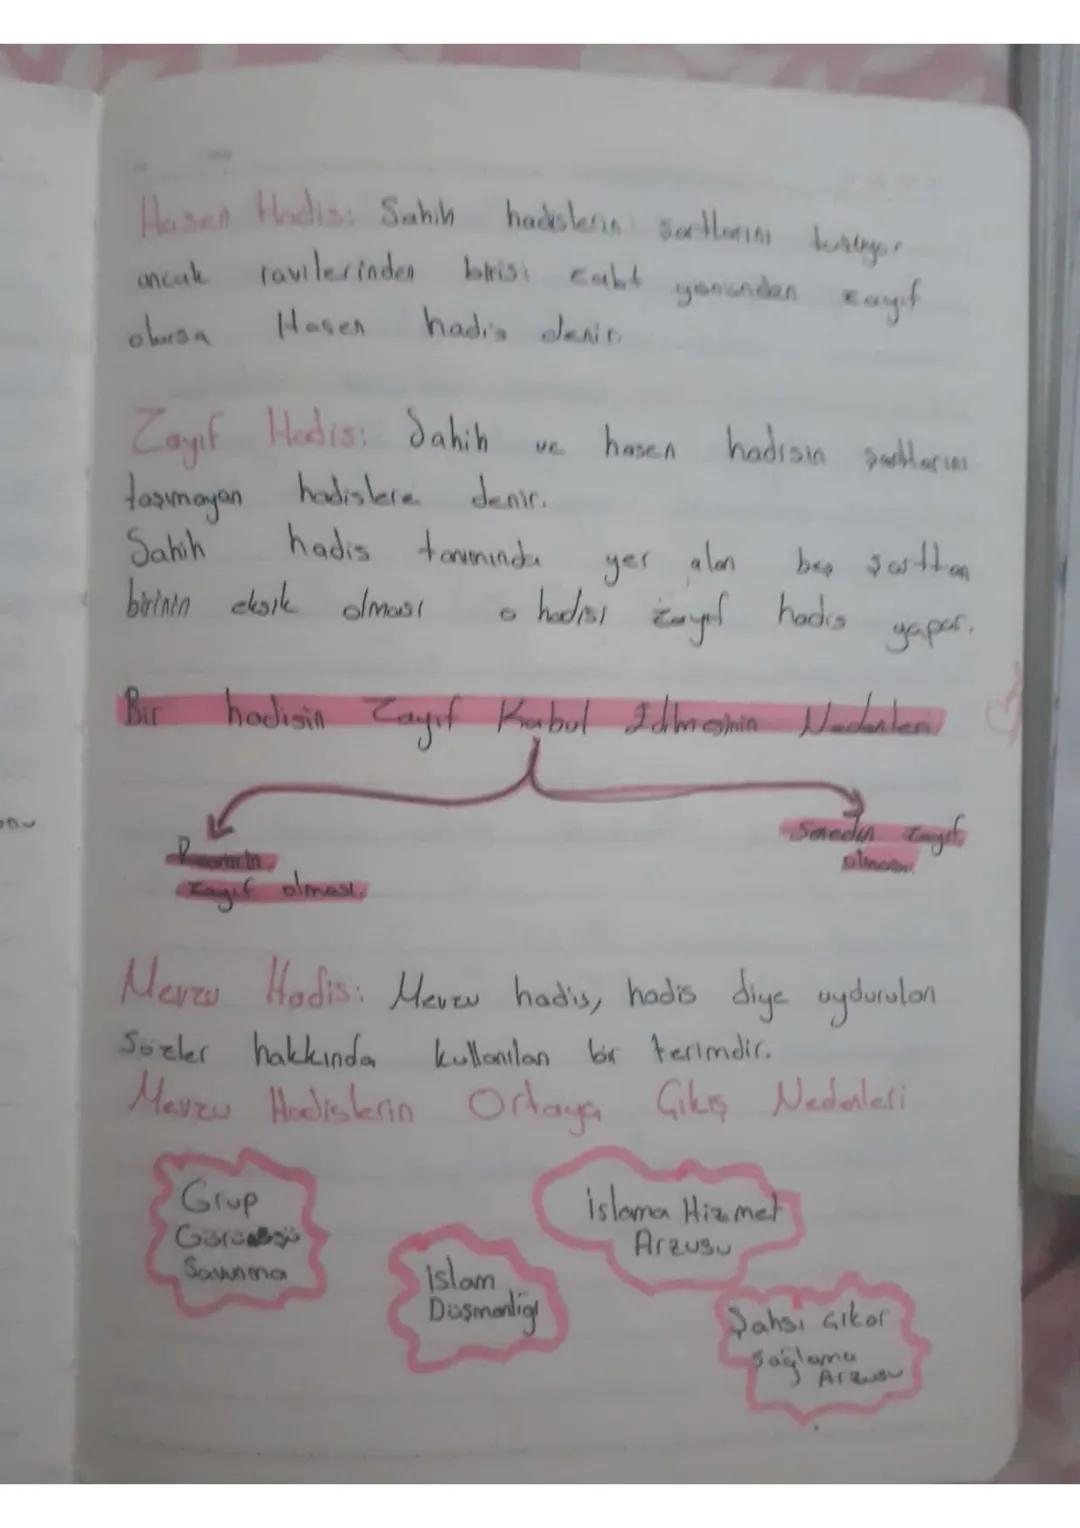 Hasen Hadis: Sahih hadislerin şartlarını taşıyor
ancak ravilerinden birisi zabt yönünden zayıf
olursa Hasen hadis denir.
Zayıf Hadis: Sahih ve hasen hadisin şartlarını
taşımayan hadislere denir.
Sahih hadis tanımında yer alan beş şarttan
birinin eksik olması o hadisi zayıf hadis yapar.
Bir hadisin Zayıf Kabul Edilmesinin Nedenleri
Ravinin
zayıf olması.
Senedin zayıf
olması.
Mevzu Hadis: Mevzu hadis, hadis diye uydurulan
Sözler hakkında kullanılan bir terimdir.
Mevzu Hadislerin Ortaya Çıkış Nedenleri
Grup
Görüşünü
Savunma
İslam
Düşmanlığı
İslama Hizmet
Arzusu
Şahsi Çıkar
Sağlama
Arzusu